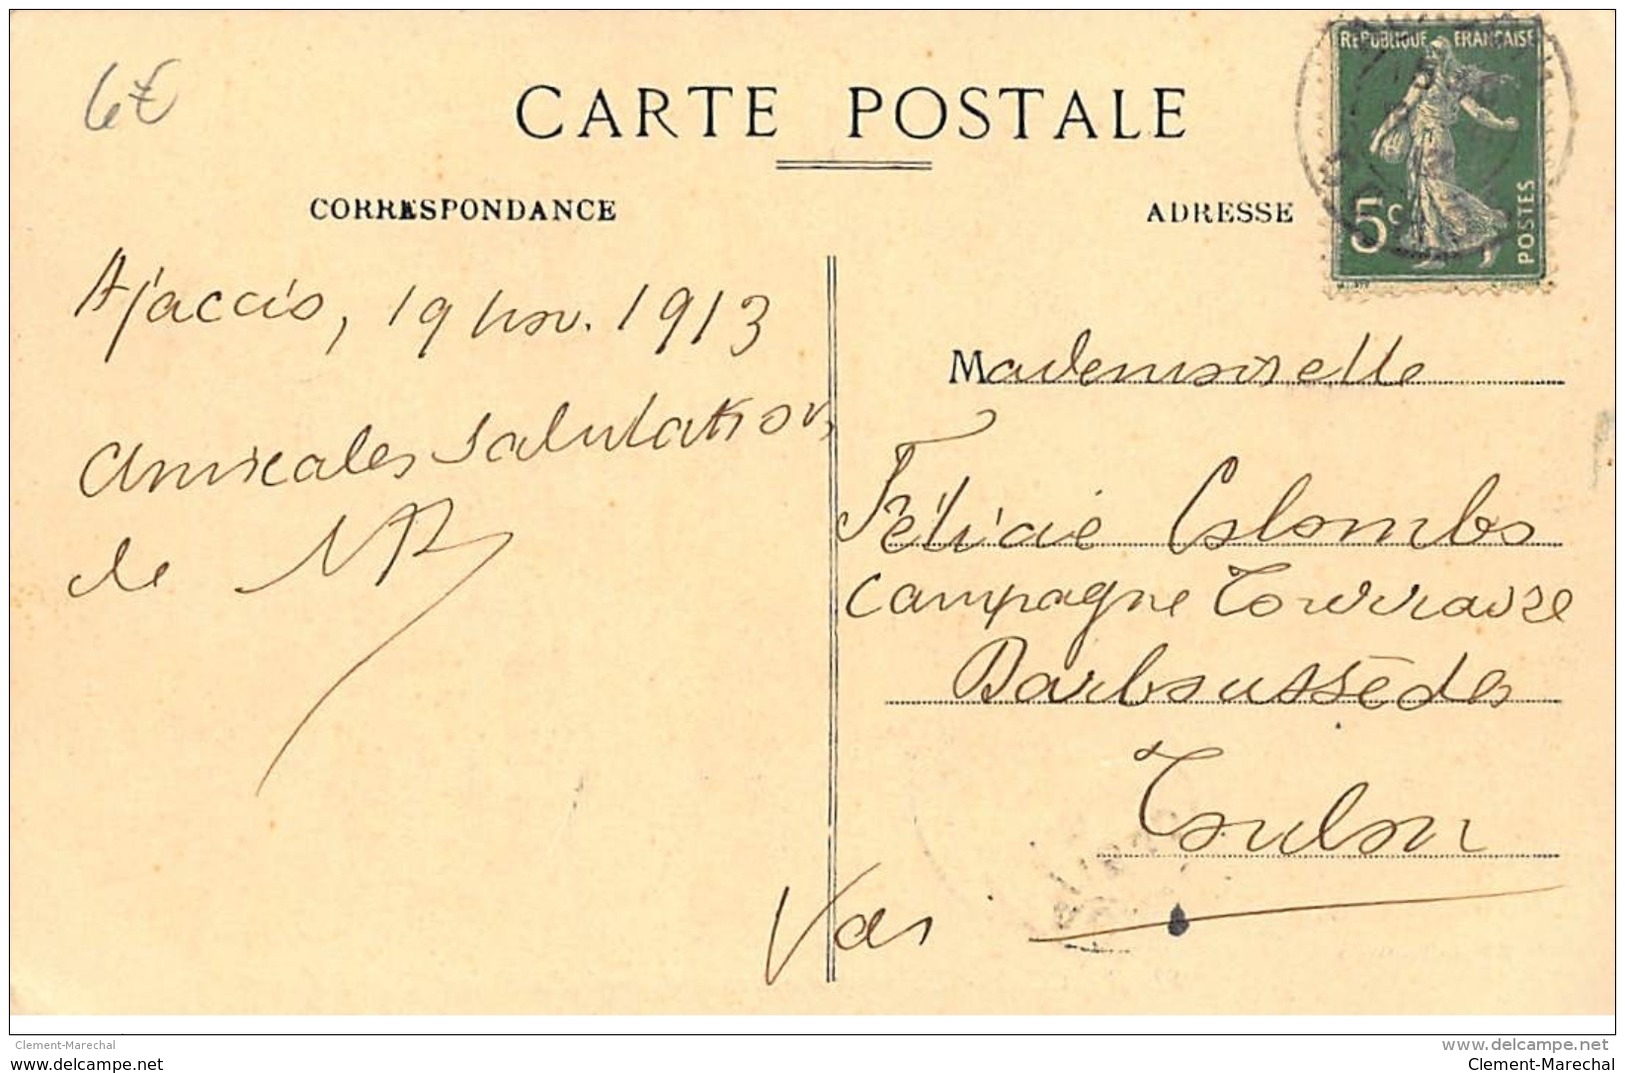 6€
CARTE POSTALE
CORRESPONDANCE
ADRESSE
REPUBLIQUE FRANÇAISE
5c
POSTES
Ajaccio, 19 nov. 1913
Amicales salutations
de
Mademoiselle
Félicie Colombo
Campagne Tourraire
Barboussèdes
Toulon
Var
Clement-Marechal
www.delcampe.net
Clement-Marechal
Clement-Marechal